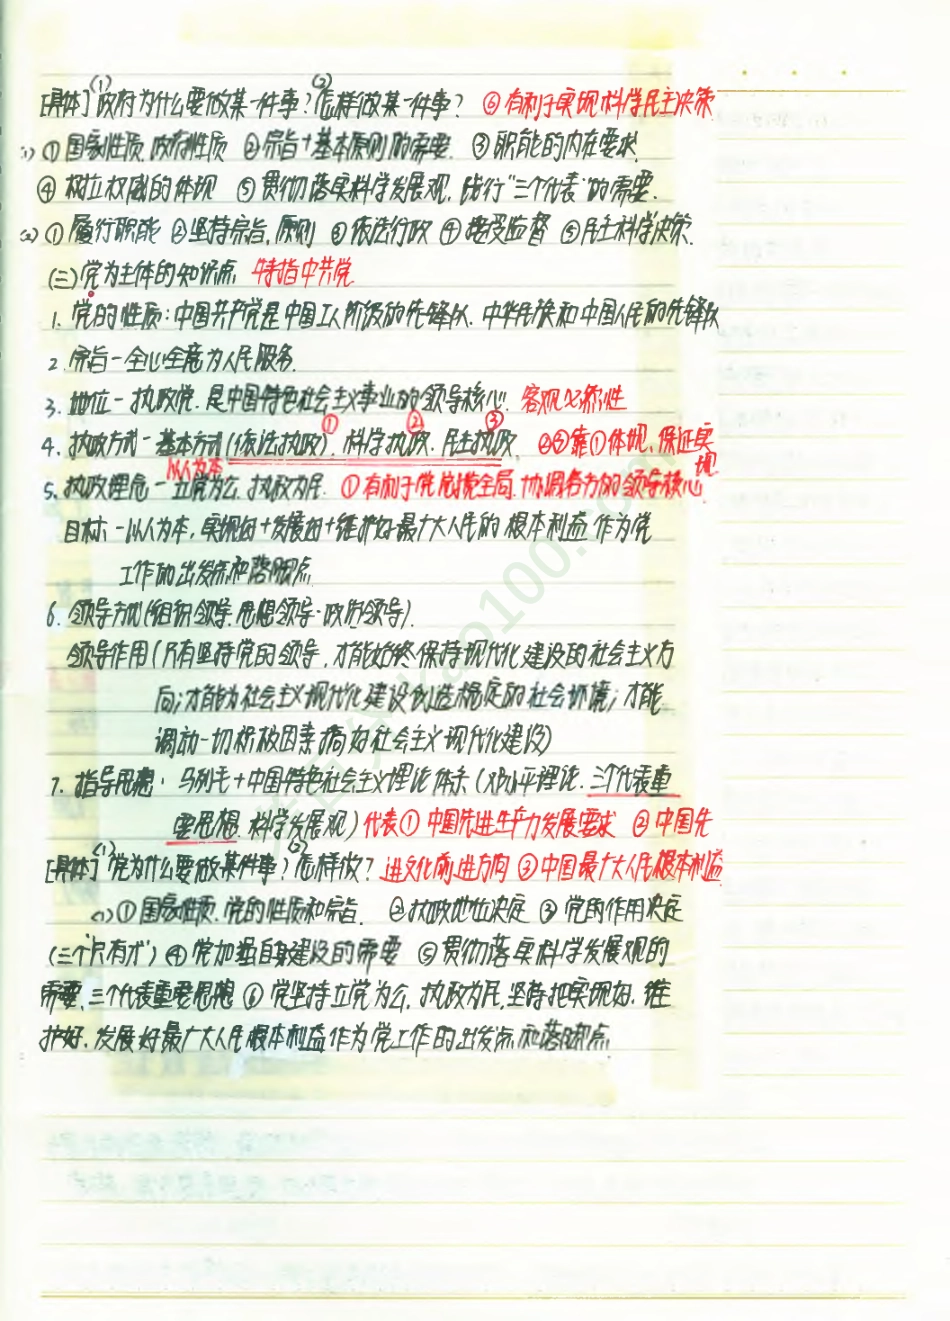 [具体]⑴政府为什么要做某一件事?⑵怎样做某一件事? ⑥有利于实现科学民主决策
⑴①国家性质 政府性质 ②宗旨+基本原则的需要. ③职能的内在要求.
④树立权威的体现 ⑤贯彻落实科学发展观, 践行"三个代表"的需要.
⑵①履行职能 ②坚持宗旨, 原则 ③依法行政 ④接受监督 ⑤民主科学决策.
(三)党为主体的知识点 特指中共党
1. 党的性质:中国共产党是中国工人阶级的先锋队. 中华民族和中国人民的先锋队
2. 宗旨—全心全意为人民服务.
3. 地位—执政党. 是中国特色社会主义事业的领导核心. 客观必然性
4. 执政方式—基本方式(依法执政)①. 科学执政②. 民主执政③. ②③靠①体现、保证实现
5. 执政理念—以人为本 立党为公、执政为民. ①有利于党总揽全局、协调各方的领导核心
目标—以人为本, 实现好+发展好+维护好最广大人民的根本利益 作为党
工作的出发点和落脚点
6. 领导方式(组织领导. 思想领导·政治领导).
领导作用(只有坚持党的领导, 才能始终保持现代化建设的社会主义方
向;才能为社会主义现代化建设创造稳定的社会环境;才能
调动一切积极因素搞好社会主义现代化建设)
7. 指导思想:马列毛+中国特色社会主义理论体系(邓小平理论. 三个代表重
要思想. 科学发展观) 代表①中国先进生产力发展要求 ②中国先
[具体]⑴党为什么要做某件事?⑵怎样做? 进文化前进方向 ③中国最广大人民根本利益
⑴①国家性质. 党的性质和宗旨. ②执政地位决定 ③党的作用决定
(三个"只有才") ④党加强自身建设的需要 ⑤贯彻落实科学发展观的
需要、三个代表重要思想 ⑥党坚持立党为公, 执政为民, 坚持把实现好. 维
护好. 发展好最广大人民根本利益作为党工作的出发点和落脚点